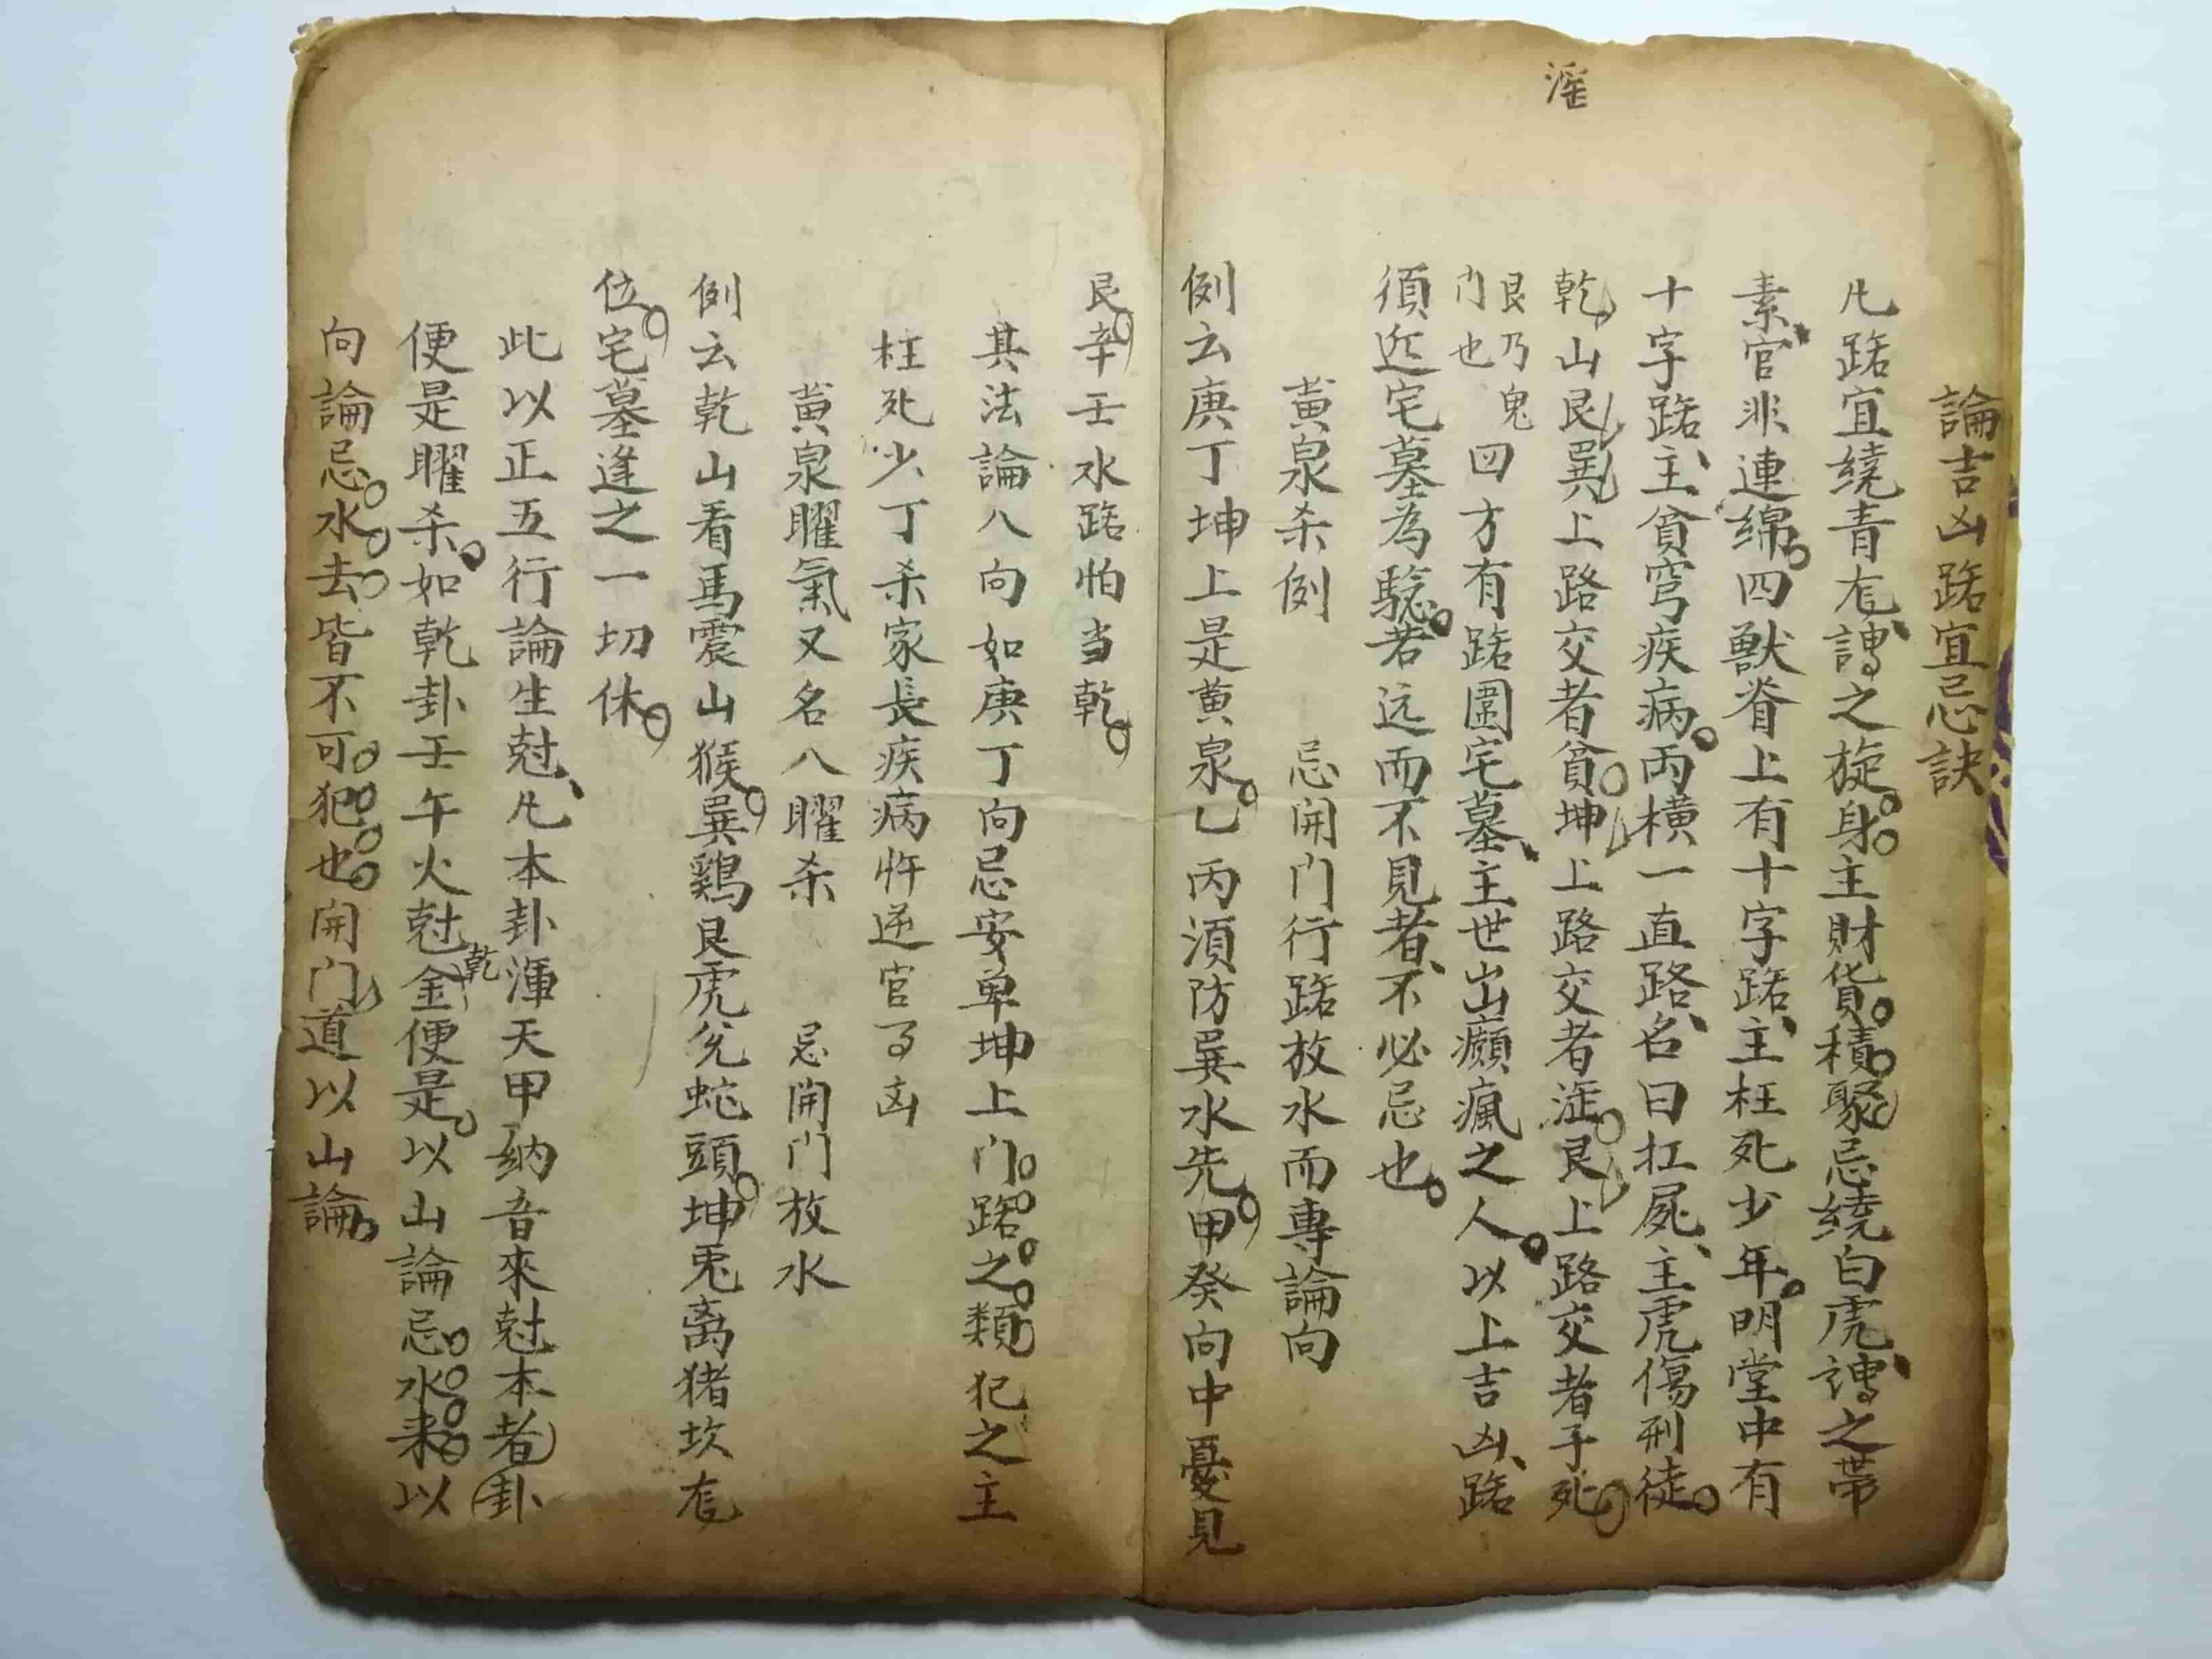 淫
論吉凶路宜忌訣
凢路宜繞青竜謂之旋身主財貨積聚忌繞白虎謂之帶
素官非連綿四獸脊上有十字路主枉死少年明堂中有
十字路主貧窮疾病两横一直路名曰扛屍主虎傷刑徒
乾山艮巽上路交者貧坤上路交者淫艮上路交者子死
艮乃鬼
门也
四方有路圍宅墓主世出癲瘋之人以上吉凶路
須近宅墓為騐若远而不見者不必忌也
黄泉杀例 忌開门行路放水而專論向
例云庚丁坤上是黄泉乙丙須防巽水先甲癸向中憂見
艮辛壬水路怕当乾
其法論八向如庚丁向忌安单坤上门路之類犯之主
枉死少丁杀家長疾病忤逆官司凶
黄泉曜氣又名八曜杀 忌開门放水
例云乾山看馬震山猴巽鷄艮虎兊蛇頭坤兎离猪坎竜
位宅墓逢之一切休
此以正五行論生尅凢本卦渾天甲納音來尅本者卦
便是曜杀如乾卦壬午火尅乾金便是以山論忌水来以
向論忌水去皆不可犯也開门道以山論